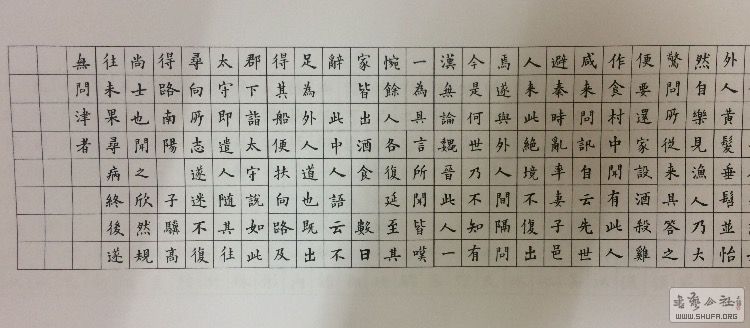 外人黃髮垂髫並怡
然自樂見漁人乃大
驚問所從來具答之
便要還家設酒殺雞
作食村中聞有此人
咸來問訊自云先世
避秦時亂率妻子邑
人來此絕境不復出
焉遂與外人間隔問
今是何世乃不知有
漢無論魏晉此人一
一為具言所聞皆嘆
惋餘人各復延至其
家皆出酒食 數日
辭 此中人語云不
足為外人道也既出
得其船便扶向路及
郡下詣太守說如此
太守即遣人隨其往
尋向所志遂迷不復
得路南陽 子驥高
尚士也聞之欣然規
往未果尋病終後遂
無問津者
WWW.SHUFA.ORG